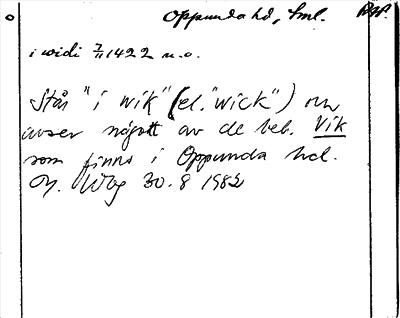 Oppunda hd, Sml.
i widi 7/11 1422 u.o.
Står "i wik" (el. "wick") och
avser något av de beb. Vik
som finns i Oppunda hd.
30.8 1982